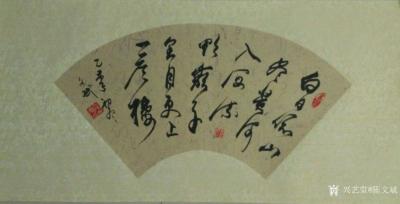 白日依山
尽黄河
入海流
欲穷千
里目更上
一层楼
兴艺堂@陈文斌